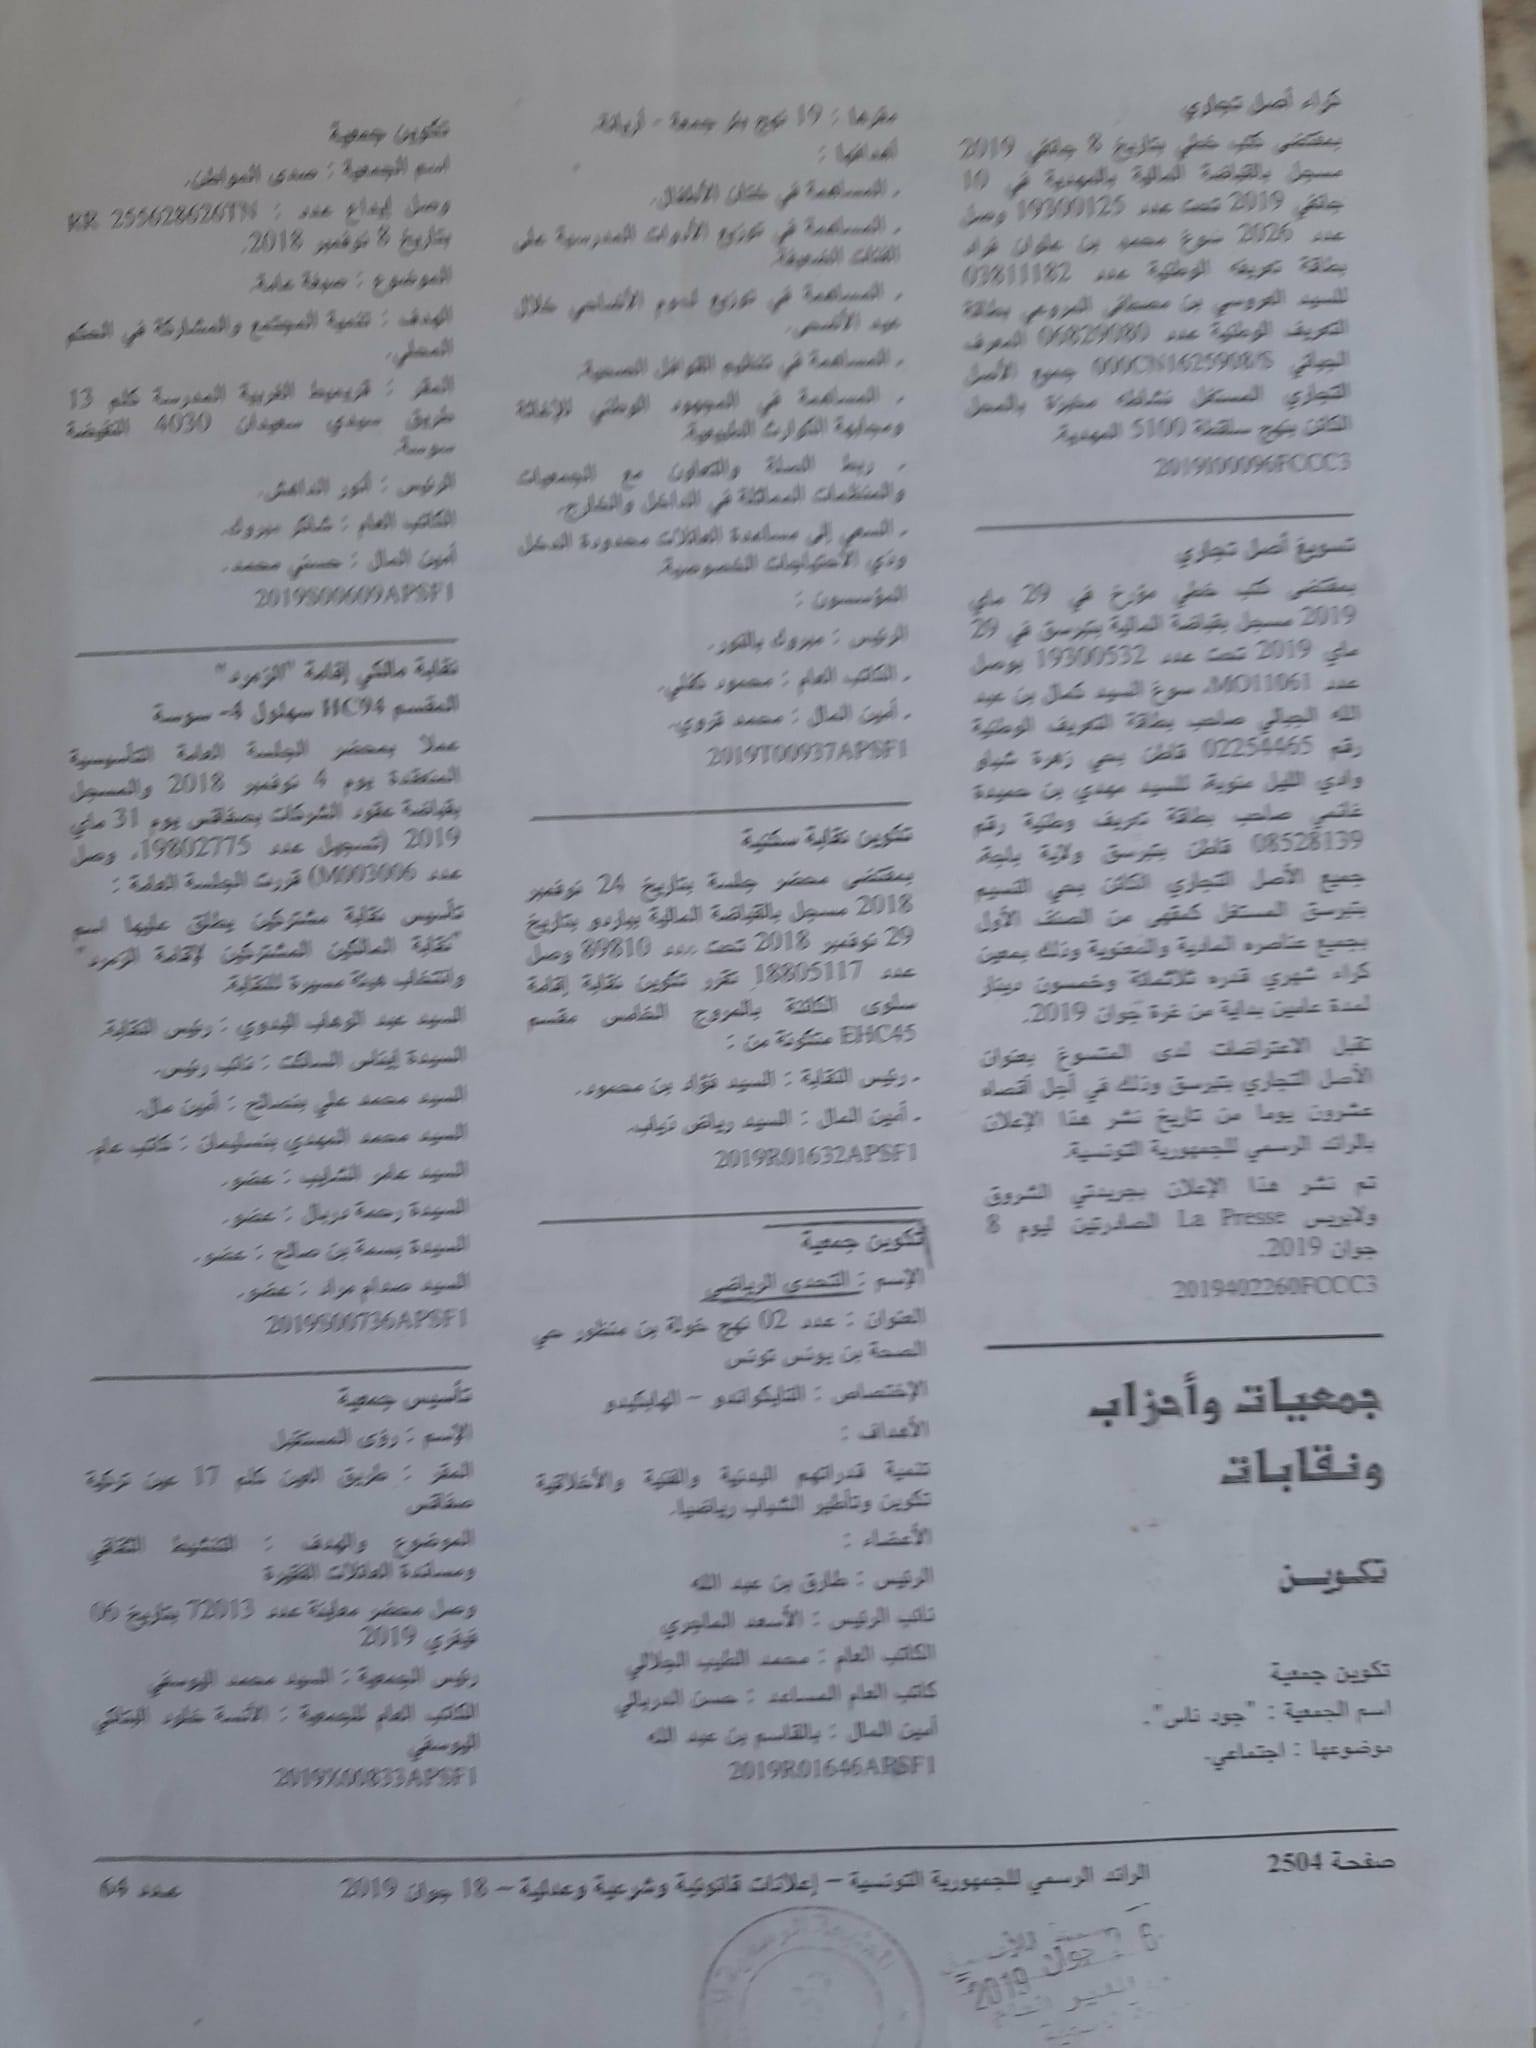 كراء أصل تجاري
بمقتضى كتب خطي بتاريخ 8 جانفي 2019
مسجل بالقباضة المالية بالمهدية في 10
جانفي 2019 تحت عدد 19300125 وصل
عدد 2026 سوغ محمد بن علوان قراد
بطاقة تعريفه الوطنية عدد 03811182
للسيد العروسي بن مصطفى المزوغي بطاقة
التعريف الوطنية عدد 06829080 المعرف
الجبائي 000CN1625908/S جميع الأصل
التجاري المستغل نشاطه مخبزة بالمحل
الكائن بنهج سلقطة 5100 المهدية.
2019I00096FCCC3
تسويغ أصل تجاري
بمقتضى كتب خطي مؤرخ في 29 ماي
2019 مسجل بقباضة المالية بتبرسق في 29
ماي 2019 تحت عدد 19300532 بوصل
عدد MO11061، سوغ السيد كمال بن عبد
الله الجبالي صاحب بطاقة التعريف الوطنية
رقم 02254465 قاطن بحي زهرة شباو
وادي الليل منوبة، للسيد مهدي بن حميدة
غانمي صاحب بطاقة تعريف وطنية رقم
08528139 قاطن بتبرسق ولاية باجة،
جميع الأصل التجاري الكائن بحي النسيم
بتبرسق المستغل كمقهى من الصنف الأول
بجميع عناصره المادية والمعنوية وذلك بمعين
كراء شهري قدره ثلاثمائة وخمسون دينار
لمدة عامين بداية من غرة جوان 2019.
تقبل الاعتراضات لدى المتسوغ بعنوان
الأصل التجاري بتبرسق وذلك في أجل أقصاه
عشرون يوما من تاريخ نشر هذا الإعلان
بالرائد الرسمي للجمهورية التونسية.
تم نشر هذا الإعلان بجريدتي الشروق
ولابريس La Presse الصادرتين ليوم 8
جوان 2019.
2019402260FCCC3
جمعيات وأحزاب
ونقابات
تكويـن
تكوين جمعية
اسم الجمعية : "جود ناس".
موضوعها : اجتماعي.
مقرها : 19 نهج بئر جمعة - أريانة.
أهدافها :
ـ المساهمة في ختان الأطفال.
ـ المساهمة في توزيع الأدوات المدرسية على
الفئات الضعيفة.
ـ المساهمة في توزيع لحوم الأضاحي خلال
عيد الأضحى.
ـ المساهمة في تنظيم القوافل الصحية.
ـ المساهمة في المجهود الوطني للإغاثة
ومجابهة الكوارث الطبيعية.
ـ ربط الصلة والتعاون مع الجمعيات
والمنظمات المماثلة في الداخل والخارج.
ـ السعي إلى مساعدة العائلات محدودة الدخل
وذي الاحتياجات الخصوصية.
المؤسسون :
الرئيس : مبروك بالنور.
ـ الكاتب العام : محمود
ـ أمين المال : محمد قروي.
2019T00937APSF1
تكوين نقابة سكنية
بمقتضى محضر جلسة بتاريخ 24 نوفمبر
2018 مسجل بالقباضة المالية بباردو بتاريخ
29 نوفمبر 2018 تحت عدد 89810 وصل
عدد 18805117 تقرر تكوين نقابة إقامة
سلوى الكائنة بالمروج الخامس مقسم
EHC45 متكونة من :
ـ رئيس النقابة : السيد فؤاد بن محمود.
ـ أمين المال : السيد رياض ذياب.
2019R01632APSF1
تكوين جمعية
الإسم : التحدي الرياضي
العنوان : عدد 02 نهج خولة بن منظور حي
الصحة بن يونس تونس
الإختصاص : التايكواندو – الهابكيدو
الأهداف :
تنمية قدراتهم البدنية والفنية والأخلاقية
تكوين وتأطير الشباب رياضيا.
الأعضاء :
الرئيس : طارق بن عبد الله
نائب الرئيس : الأسعد الماجري
الكاتب العام : محمد الطيب الجلالي
كاتب العام المساعد : حسن الدريالي
أمين المال : بالقاسم بن عبد الله
2019R01646APSF1
تكوين جمعية
اسم الجمعية : صدى المواطن.
وصل إيداع عدد : RR 255628626TN
بتاريخ 8 نوفمبر 2018.
الموضوع : صبغة عامة.
الهدف : تنمية المجتمع والمشاركة في الحكم
المحلي.
المقر : قريميط الغربية المدرسة كلم 13
طريق سيدي سعيدان 4030 النفيضة
سوسة.
الرئيس : أنور الداهش.
الكاتب العام : شاكر مبروك.
أمين المال : حسني محمد.
2019S00609APSF1
نقابة مالكي إقامة "الزمرد"
المقسم HC94 سهلول 4- سوسة
عملا بمحضر الجلسة العامة التأسيسية
المنعقدة يوم 4 نوفمبر 2018 والمسجل
بقباضة عقود الشركات بصفاقس يوم 31 ماي
2019 (تسجيل عدد 19802775، وصل
عدد M003006) قررت الجلسة العامة :
تأسيس نقابة مشتركين يطلق عليها اسم
"نقابة المالكين المشتركين لإقامة الزمرد"
وانتخاب هيئة مسيرة للنقابة.
السيد عبد الوهاب البدوي : رئيس النقابة.
السيدة إيناس الساكت : نائب رئيس.
السيد محمد علي بنصالح : أمين مال.
السيد محمد المهدي بنسليمان : كاتب عام.
السيد عامر الشايب : عضو.
السيدة رحمة دربال : عضو.
السيدة بسمة بن صالح : عضو.
السيد صدام مراد : عضو.
2019S00736APSF1
تأسيس جمعية
الإسم : رؤى المستقبل
المقر : طريق العين كلم 17 عين تركية
صفاقس
الموضوع والهدف : التنشيط الثقافي
ومساندة العائلات الفقيرة
وصل محضر معاينة عدد 72013 بتاريخ 06
فيفري 2019
رئيس الجمعية : السيد محمد اليوسفي
الكاتب العام للجمعية : الآنسة خلود البنائي
اليوسفي
2019X00833APSF1
صفحة 2504
الرائد الرسمي للجمهورية التونسية – إعلانات قانونية وشرعية وعدلية – 18 جوان 2019
عدد 64
جوان 2019